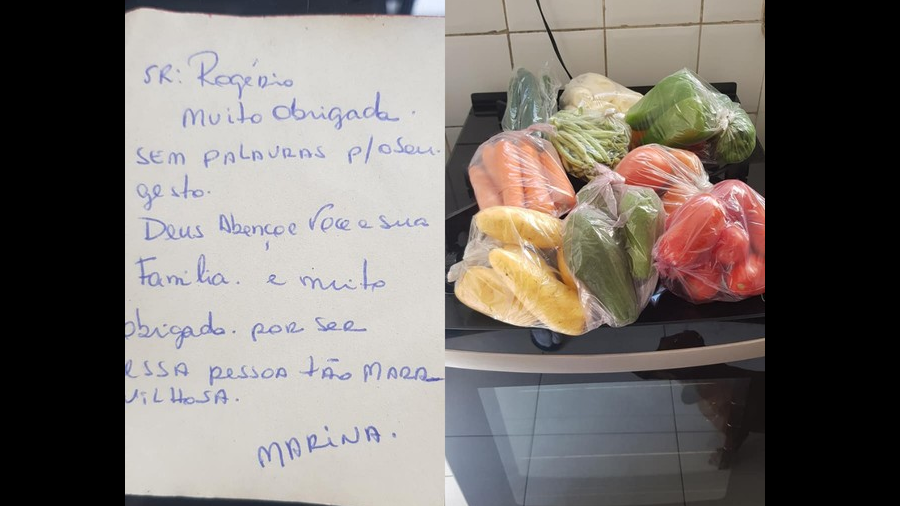 SR: Rogério
Muito Obrigada.
SEM PALAVRAS p/o seu
gesto.
Deus Abençoe Voce e sua
Família. e muito
obrigada. por ser
ESSA pessoa tão MARA
VILHOSA.
MARINA.